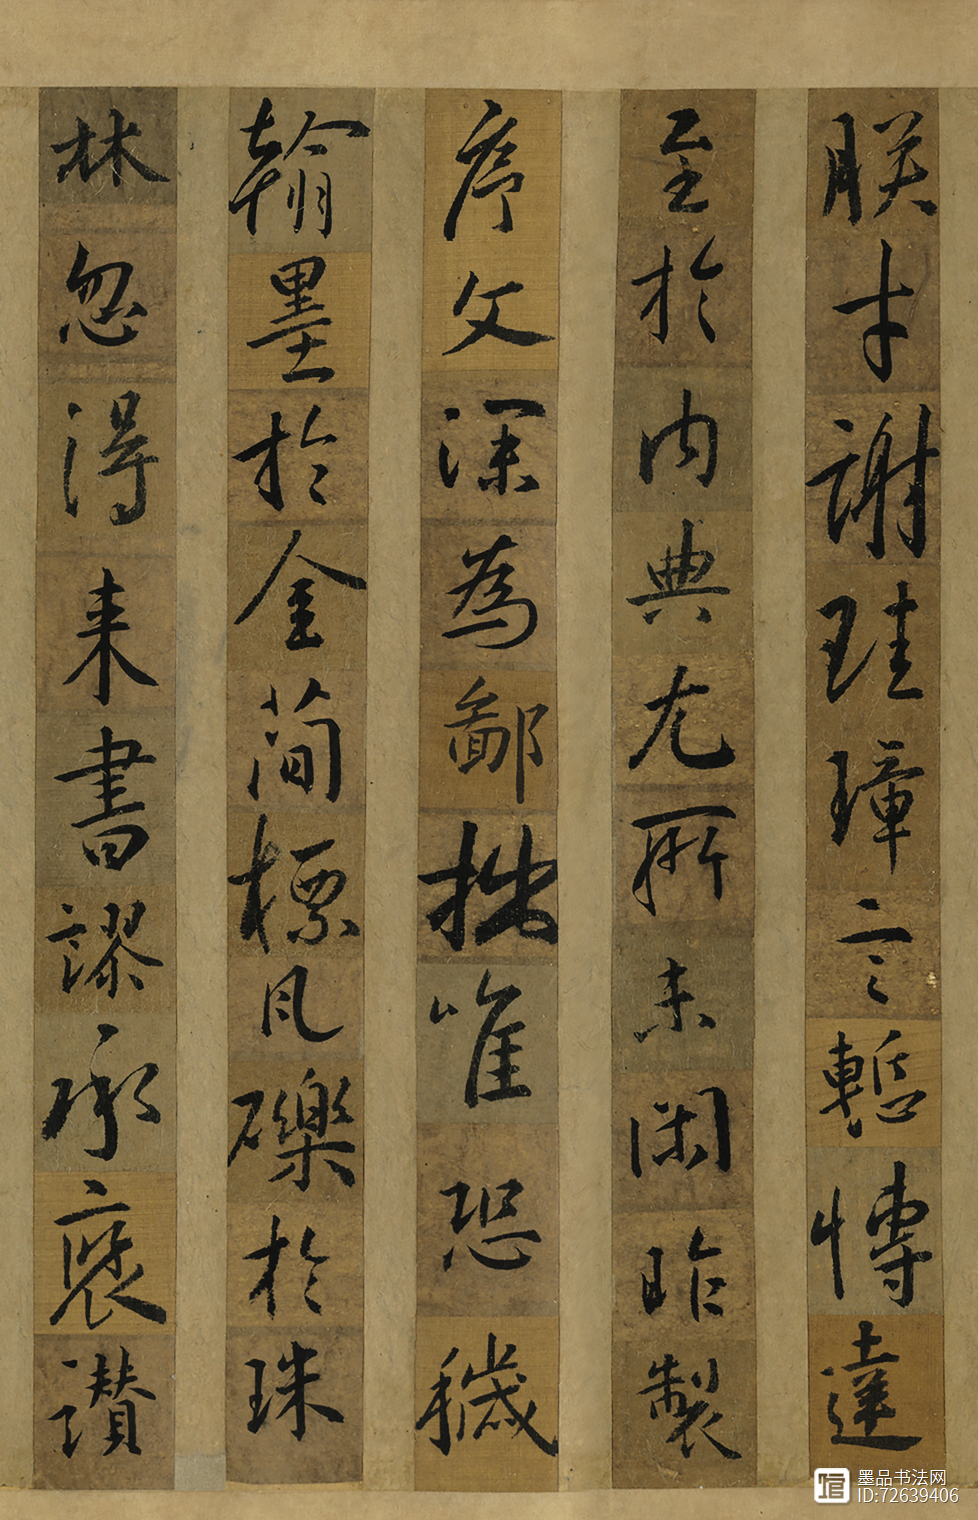 朕才謝珪璋言慙博達
至於内典尤所未閑昨製
序文深為鄙拙唯恐穢
翰墨於金簡標瓦礫於珠
林忽得来書謬承褒讃
墨品书法网
ID:72639406